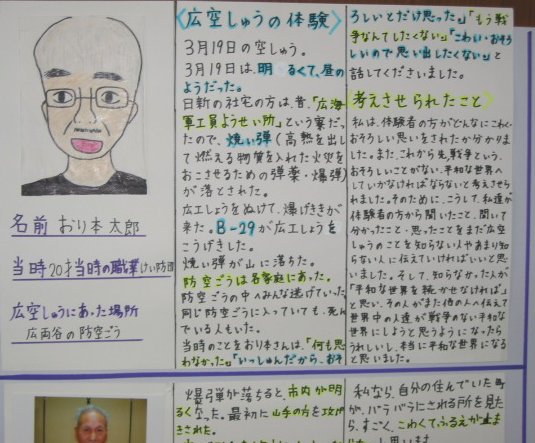 名前 おり本太郎
当時20才当時の職業けい防団
広空しゅうにあった場所
広両谷の防空ごう
〈広空しゅうの体験〉
3月19日の空しゅう。
3月19日は、明るくて、昼の
ようだった。
日新の社宅の方は、昔、「広海
軍工員ようせい所」という寮だっ
たので、焼い弾(高熱を出し
て燃える物質を入れた火災を
おこさせるための弾薬・爆弾)
が落とされた。
広工しょうをぬけて、爆げききが
来た。B-29が広工しょうを
こうげきした。
焼い弾が山に落ちた。
防空ごうは各家庭にあった。
防空ごうの中へみんな逃げていった。
同じ防空ごうに入っていても、死ん
でいる人もいた。
当時のことをおり本さんは、「何も思
わなかった。」「いっしゅんだから、おそ
ろしいとだけ思った。」「もう戦
争なんてしたくない」「こわい・おそろ
しいので思い出したくない。」と
話してくださいました。
〈考えさせられたこと〉
私は、体験者の方がどんなにこわく・
おそろしい思いをされたか分かりま
した。また、これから先、戦争という、
おそろしいことがない、平和な世界へ
していかなければならないと考えさせら
れました。そのために、こうして、私達が
体験者の方から聞いたこと、聞いて
分かったこと・思ったことをまだ広空
しゅうのことを知らない人やあまり知
らない人に伝えていければいいと思
いました。そして、知らなかった人が
「平和な世界を続かせなければ」
と思い、その人がまた他の人へ伝えて
世界中の人達が戦争のない平和な
世界にしようと思うようになったら
うれしいし、本当に平和な世界になる
と思いました。
爆弾が落ちると、市内が明
るくなった。最初に山手の方を攻げ
きされた。
私なら、自分の住んでいた町
が、バラバラにされる所を見た
ら、すごく、こわくて、ふるえが止ま